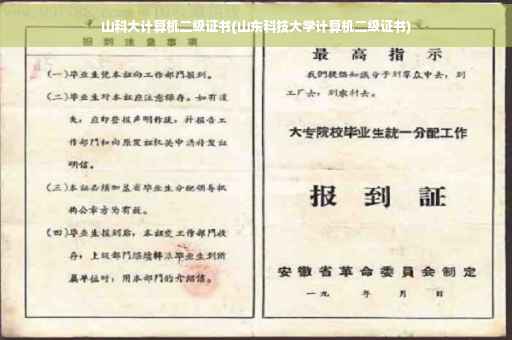 山科大计算机二级证书(山东科技大学计算机二级证书)
报到注意事项
(一)毕业生凭本证向工作部门报到。
(二)毕业生对本证应注意保存。如有遗
失,应即登报声明作废,并报告工
作部门和向原发证机关申请补发证
明信。
(三)本证必须加盖省毕业生分配领导机
构公章方为有效。
(四)毕业生报到后,本证交工作部门收
存;上级部门继续转派毕业生到所
属单位时,用本部门的介绍信。
最高指示
我们提倡知识分子到群众中去,到
工厂去,到农村去。
大专院校毕业生统一分配工作
报到証
安徽省革命委員会制定
一九 年 月 日